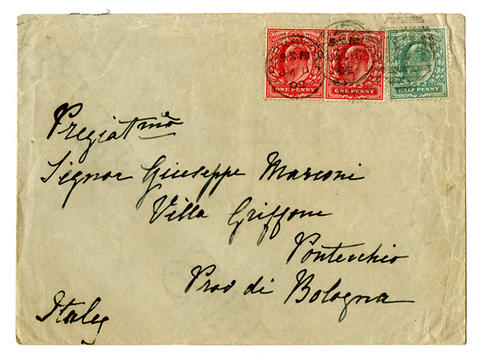 ONE PENNY
ONE PENNY
HALF PENNY
Pregiatmo
Signor Giuseppe Marconi
Villa Griffone
Pontecchio
Prov di Bologna
Italy